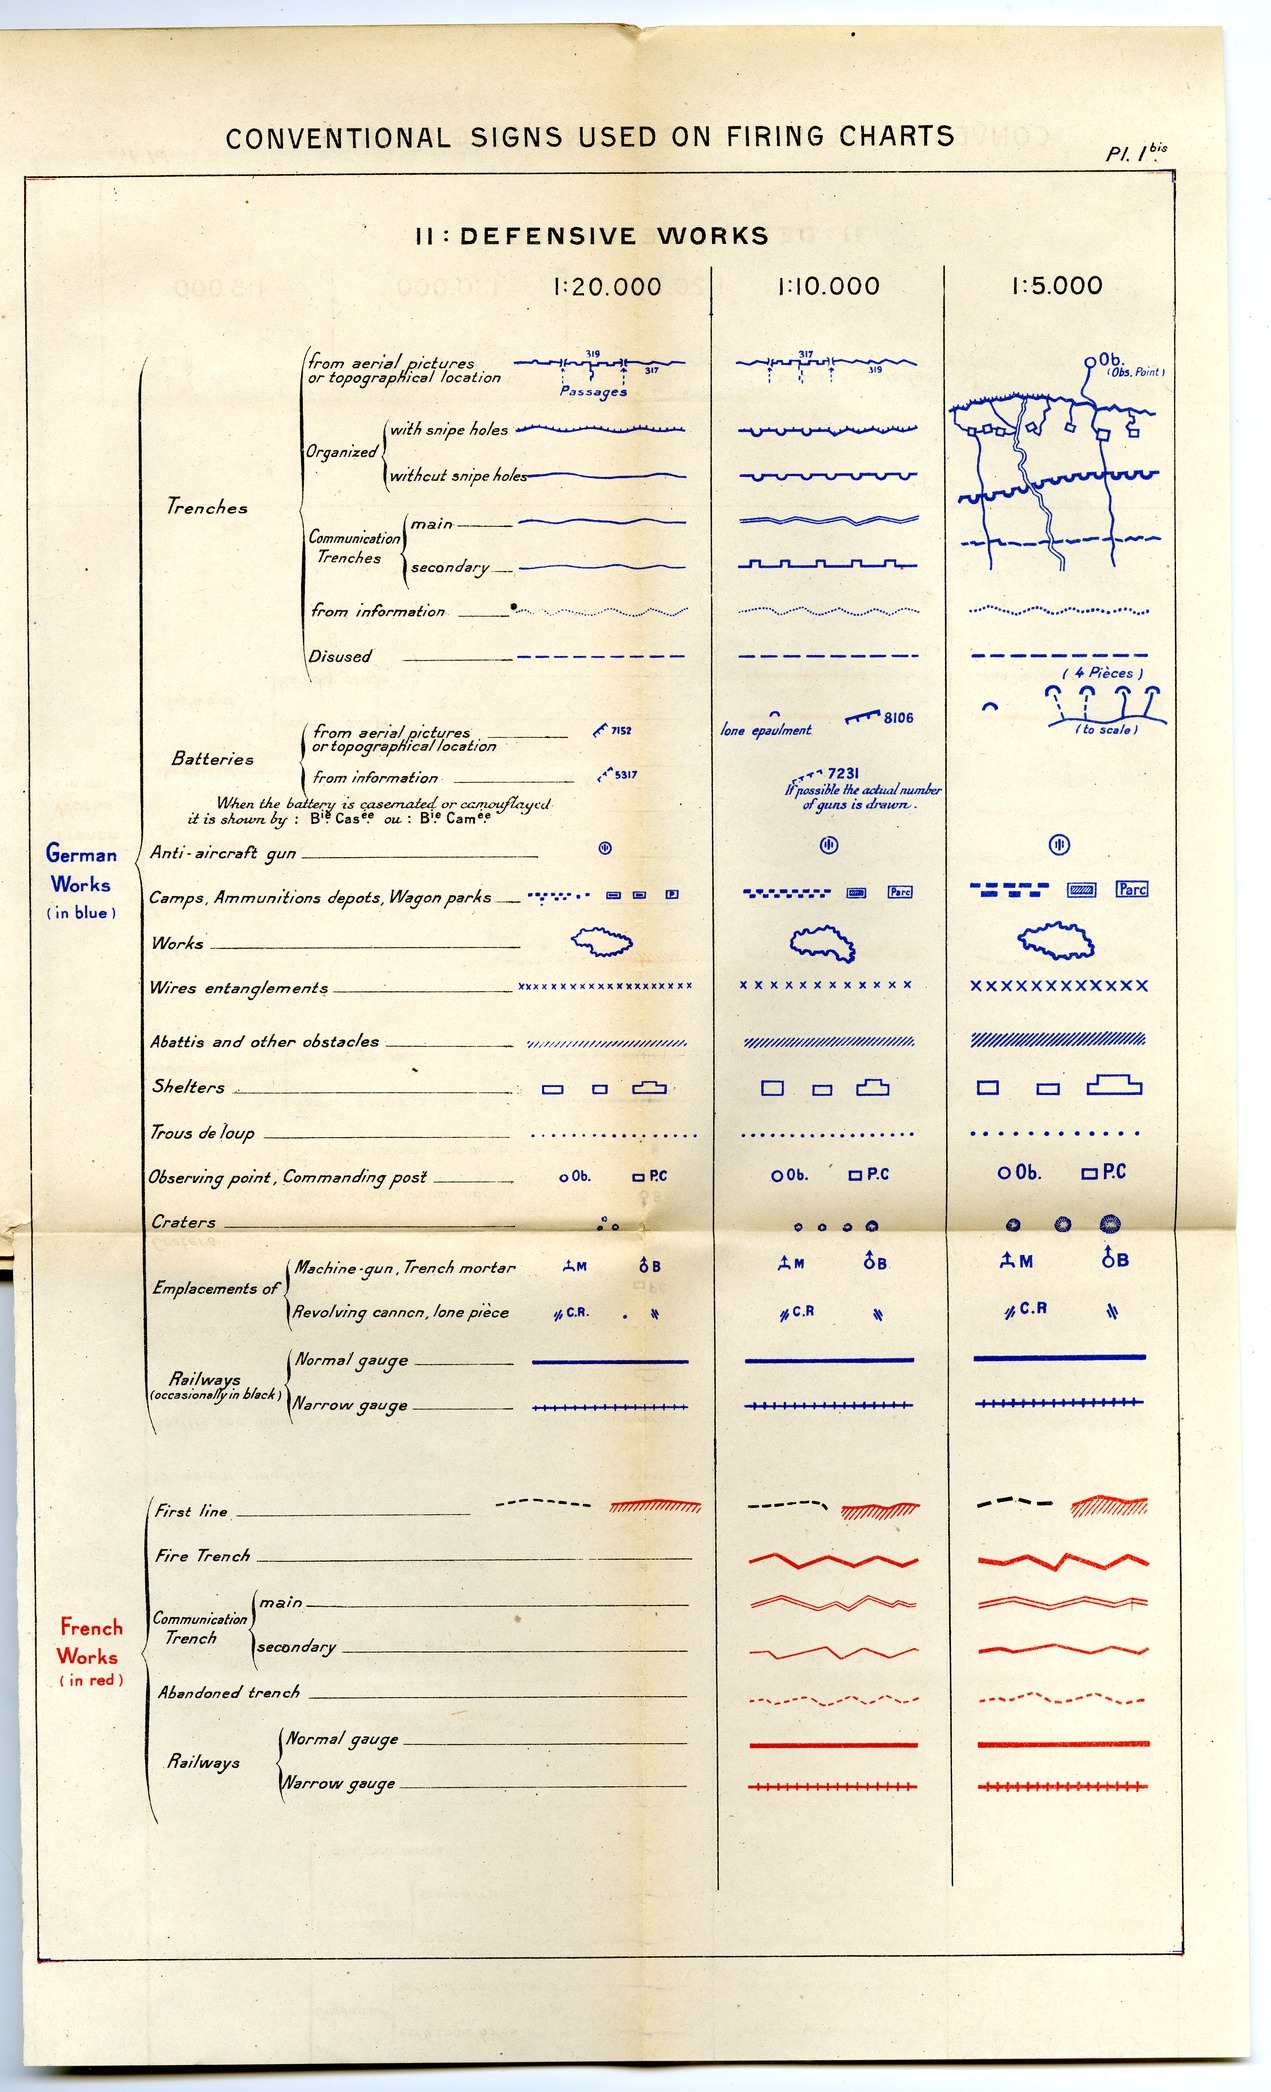 CONVENTIONAL SIGNS USED ON FIRING CHARTS
Pl. 1 bis
II: DEFENSIVE WORKS
1:20.000 1:10.000 1:5.000
German
Works
(in blue)
Trenches
from aerial pictures
or topographical location
319
317
Passages
317
319
Ob.
(Obs. Point)
Organized
with snipe holes
without snipe holes
Communication
Trenches
main
secondary
from information
Disused
(4 Pièces)
(to scale)
Batteries
from aerial pictures
or topographical location
7152
lone epaulment
8106
from information
5317
7231
If possible the actual number
of guns is drawn.
When the battery is casemated or camouflayed
it is shown by : Bie. Casée. ou : Bie. Camée.
Anti-aircraft gun
Camps, Ammunitions depots, Wagon parks
P
Parc
Parc
Works
Wires entanglements
Abattis and other obstacles
Shelters
Trous de loup
Observing point, Commanding post
Ob. P.C Ob. P.C Ob. P.C
Craters
Emplacements of
Machine-gun, Trench mortar
M B M B M B
Revolving cannon, lone pièce
C.R. C.R C.R
Railways
(occasionally in black)
Normal gauge
Narrow gauge
French
Works
(in red)
First line
Fire Trench
Communication
Trench
main
secondary
Abandoned trench
Railways
Normal gauge
Narrow gauge